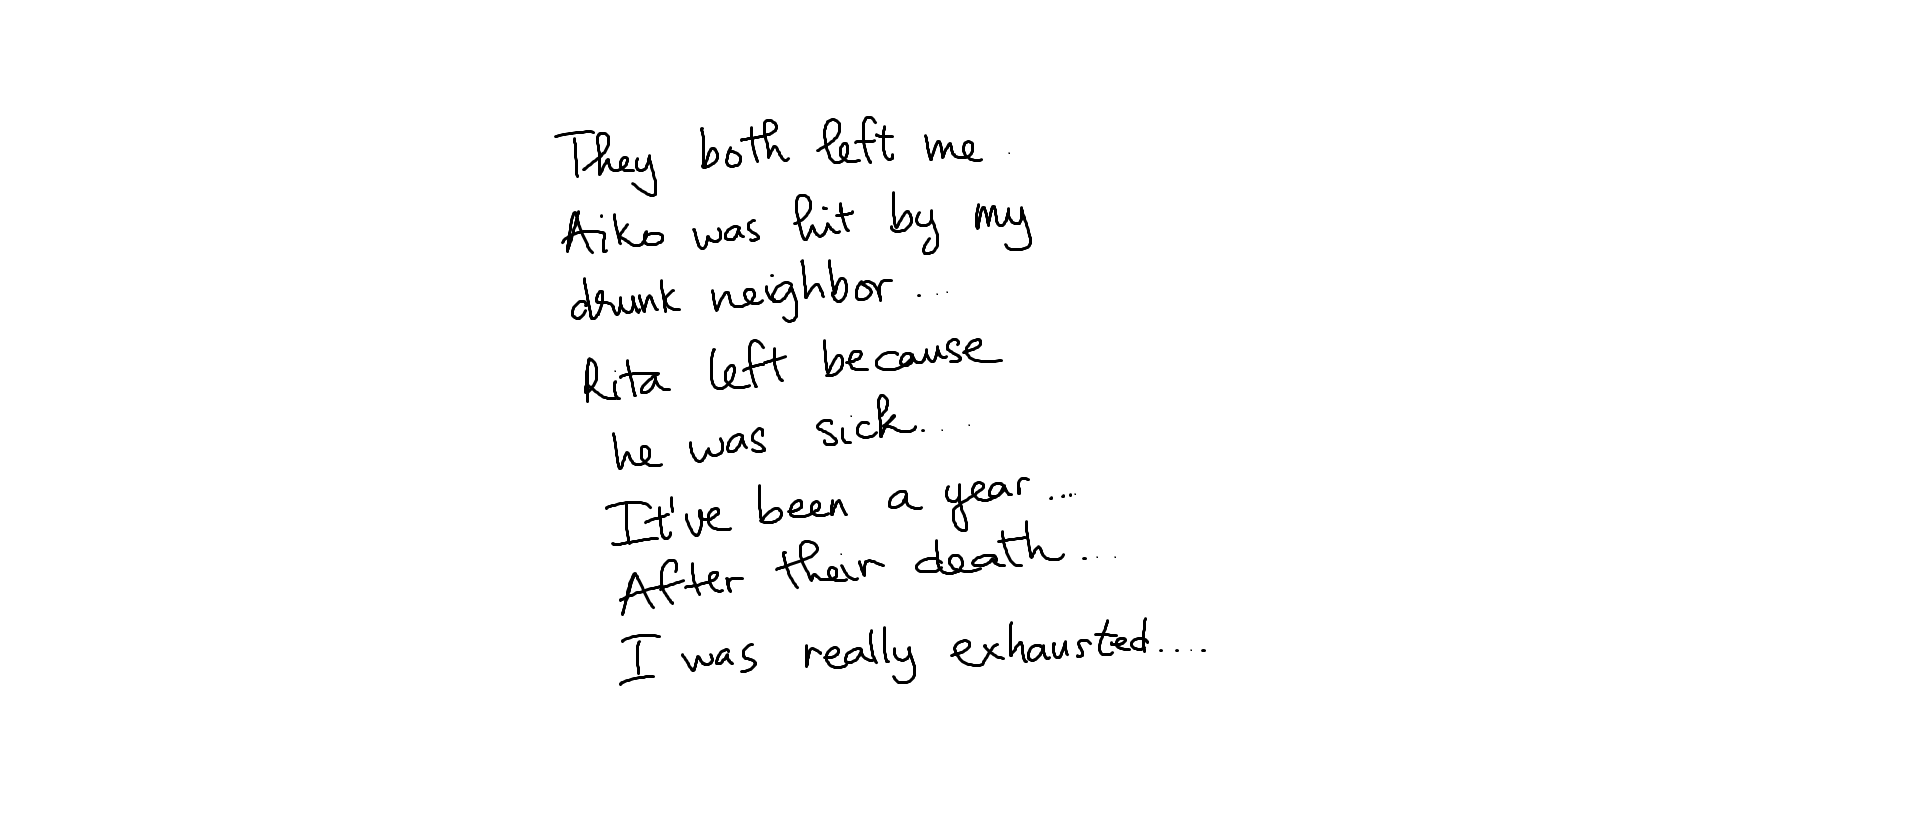 They both left me
Aiko was hit by my
drunk neighbor...
Rita left because
he was sick...
It've been a year...
After their death...
I was really exhausted....